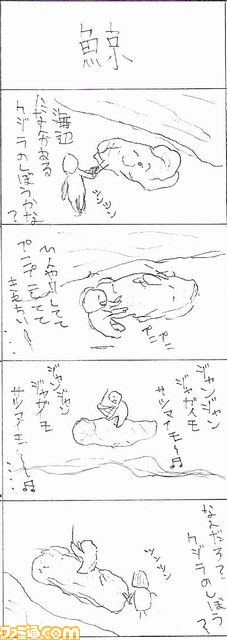 鯨
海辺
になんかある
クジラのしぼうかな
?
ツンツン
ひんやりしてて
プニプニしてて
きもちいい〜
プニプニ
ジャンジャン
ジャガイモ
サツマイモ〜♬
ジャンジャン
ジャガイモ
サツマイモ〜♬
なんだろて
クジラのしぼう
?
ツンツン
ファミ通.com